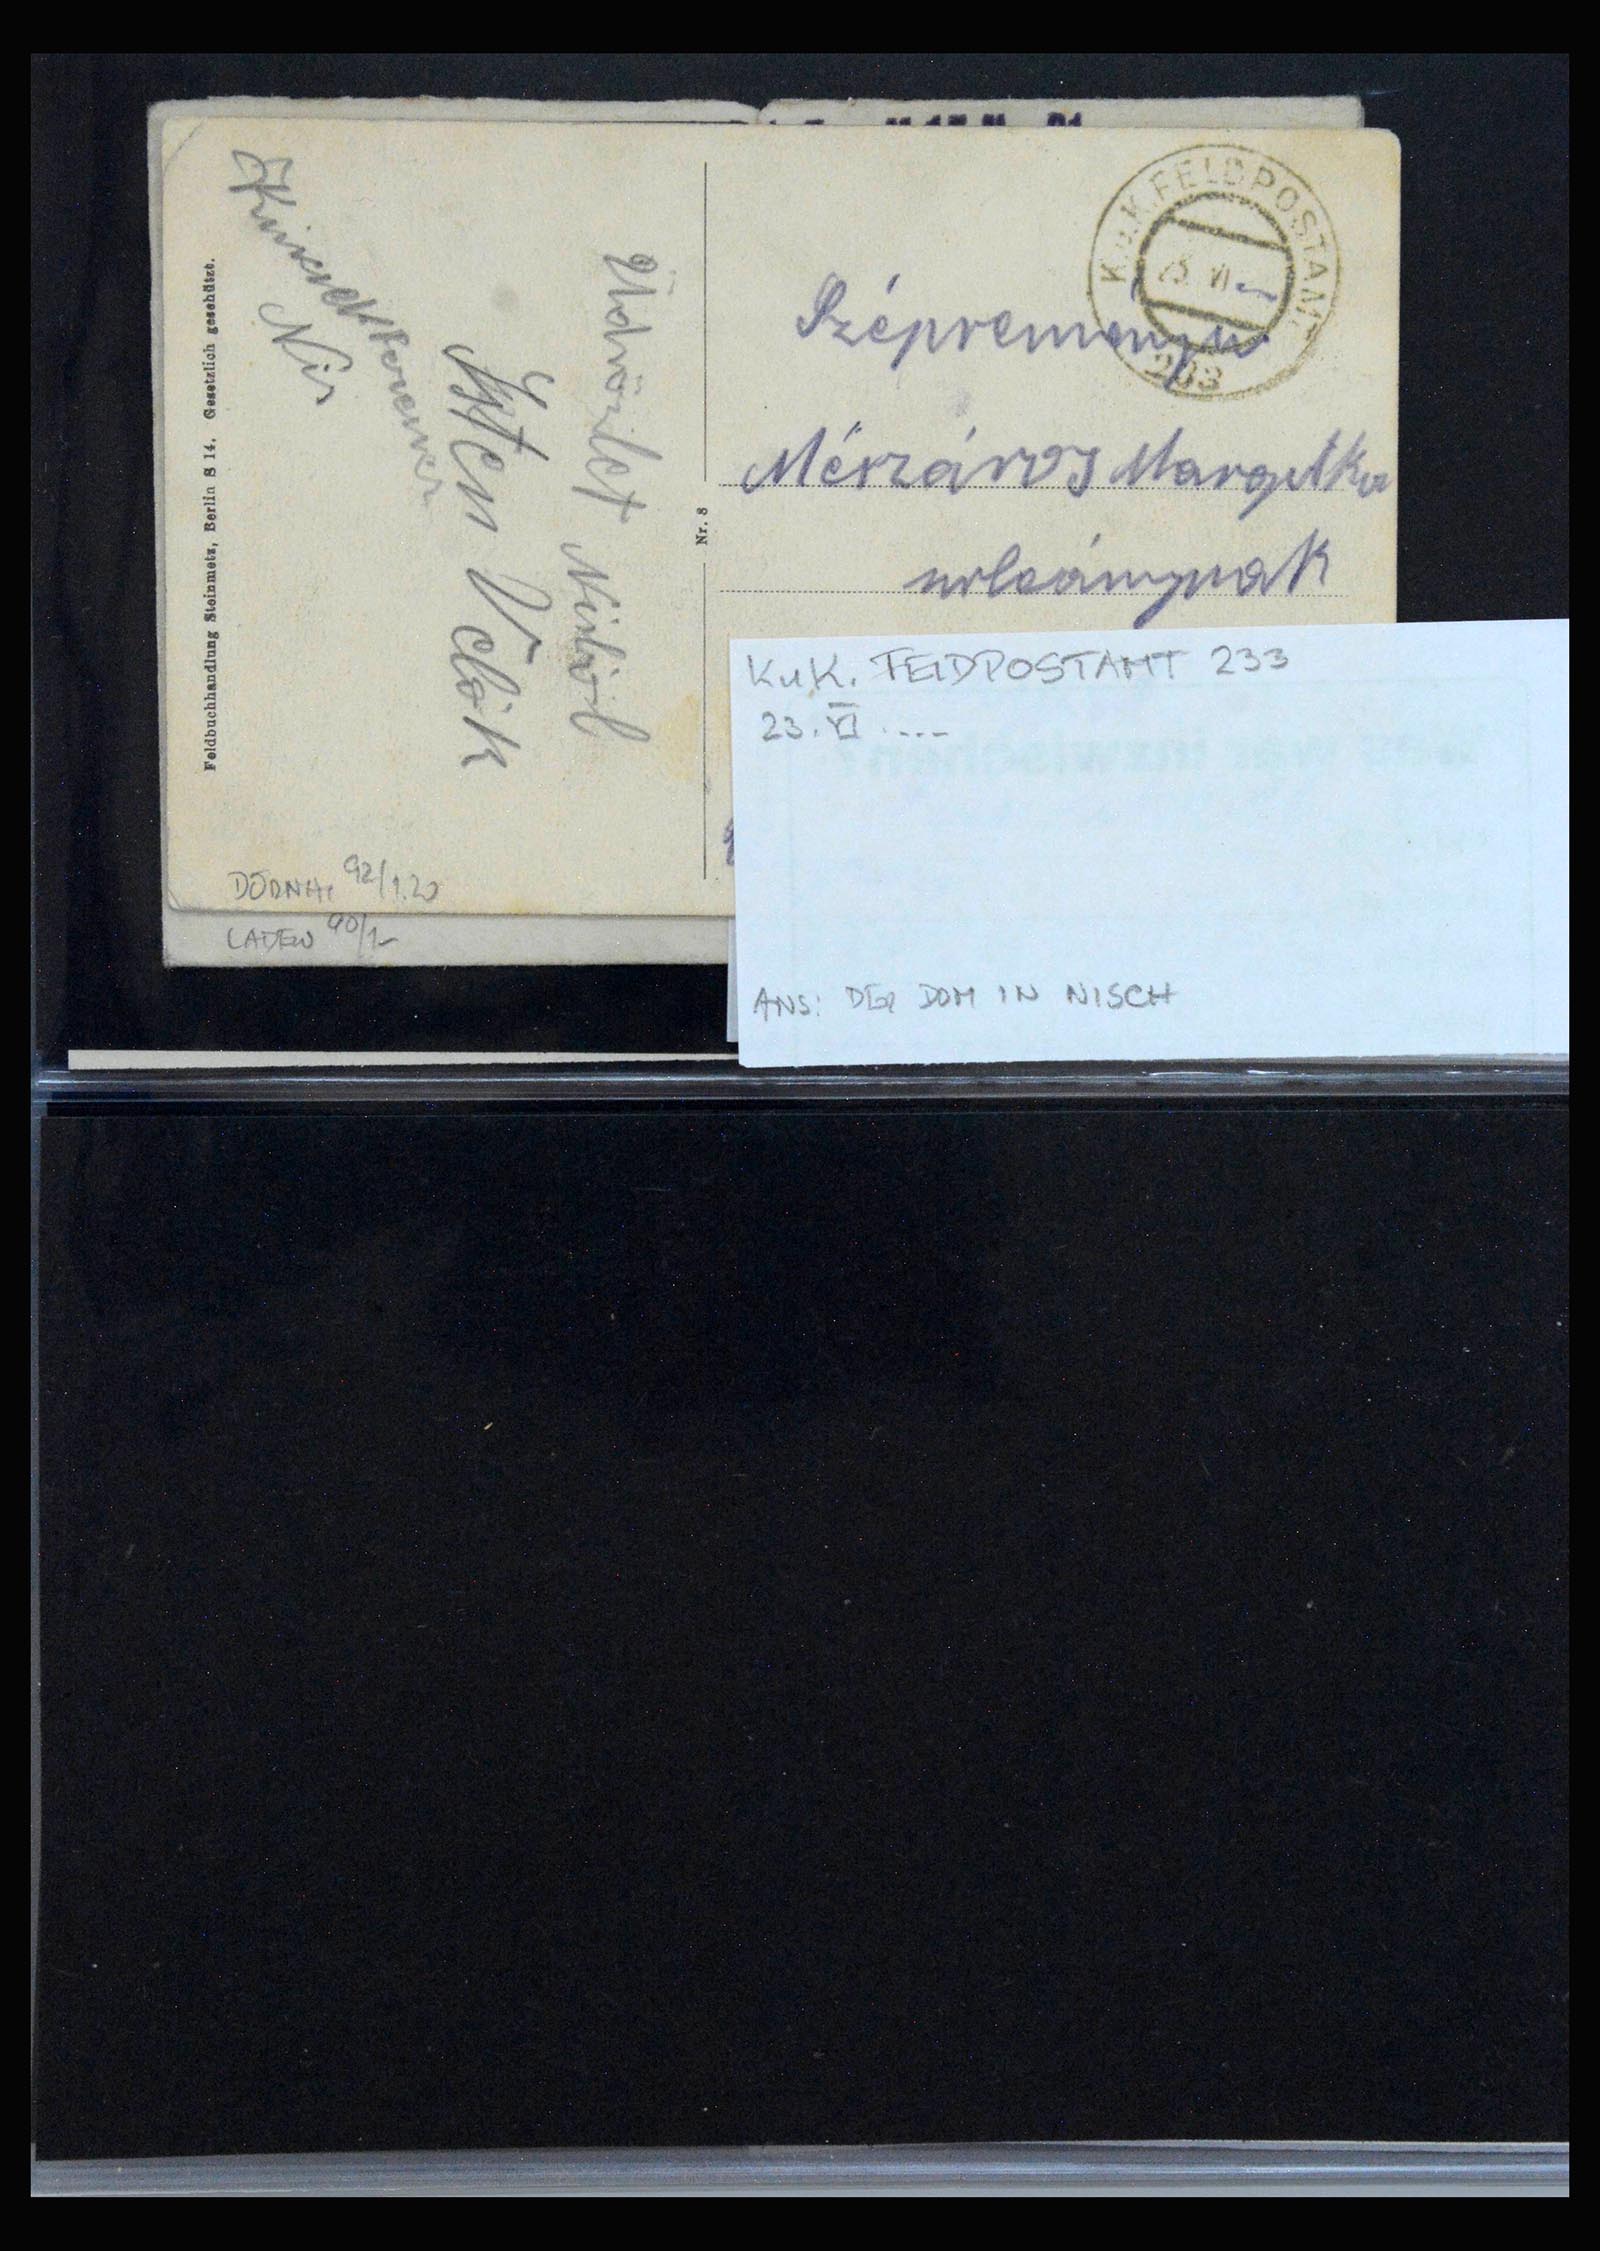 K.u.K. FELDPOSTAMT
23 VI
233
Feldbuchhandlung Steinmetz, Berlin S 14. Gesetzlich geschützt.
Nis
Isten Velök
Üdvözlet Nisböl
Nr. 8
Mérzáros Margitka
urleánynak
92/1.20
LADEN 90/1-
KuK. FELDPOSTAMT 233
23. VI. ----
ANS: DER DOM IN NISCH